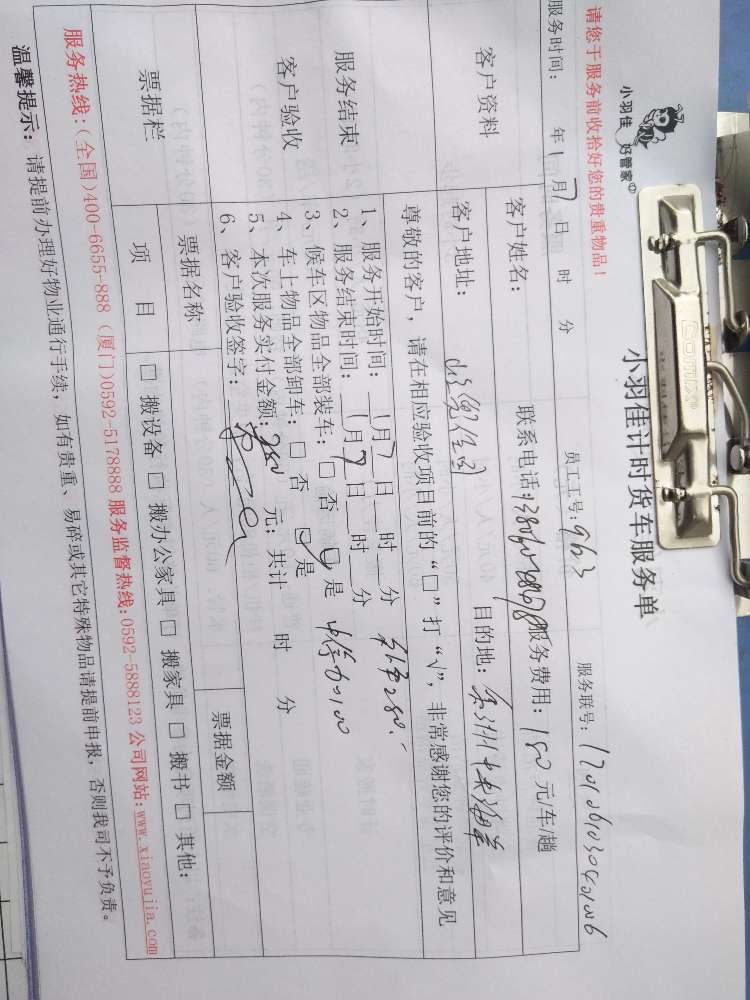 小羽佳 好管家®
小羽佳计时货车服务单
请您于服务前收拾好您的贵重物品！
服务联号：
服务时间： 年 1 月 7 日 时 分 员工工号：963
客户资料
客户姓名： 联系电话： 服务费用：180 元/车/趟
客户地址： 目的地：
服务结束
客户验收
尊敬的客户，请在相应验收项目前的“□”打“√”，非常感谢您的评价和意见
1、服务开始时间：1月7日 时 分
2、服务结束时间：1月7日 时 分
3、候车区物品全部装车：□ 否 ☑ 是
4、车上物品全部卸车：□ 否 ☑ 是
5、本次服务实付金额：280 元；共计 时 分
6、客户验收签字：
票据栏
票据名称 票据金额
项 目 □ 搬设备 □ 搬办公家具 □ 搬家具 □ 搬书 □ 其他：
服务热线：(全国)400-6655-888 (厦门)0592-5178888 服务监督热线：0592-5888123 公司网站：www.xiaoyujia.com
温馨提示：请提前办理好物业通行手续，如有贵重、易碎或其它特殊物品请提前申报，否则我司不予负责。
COMIX